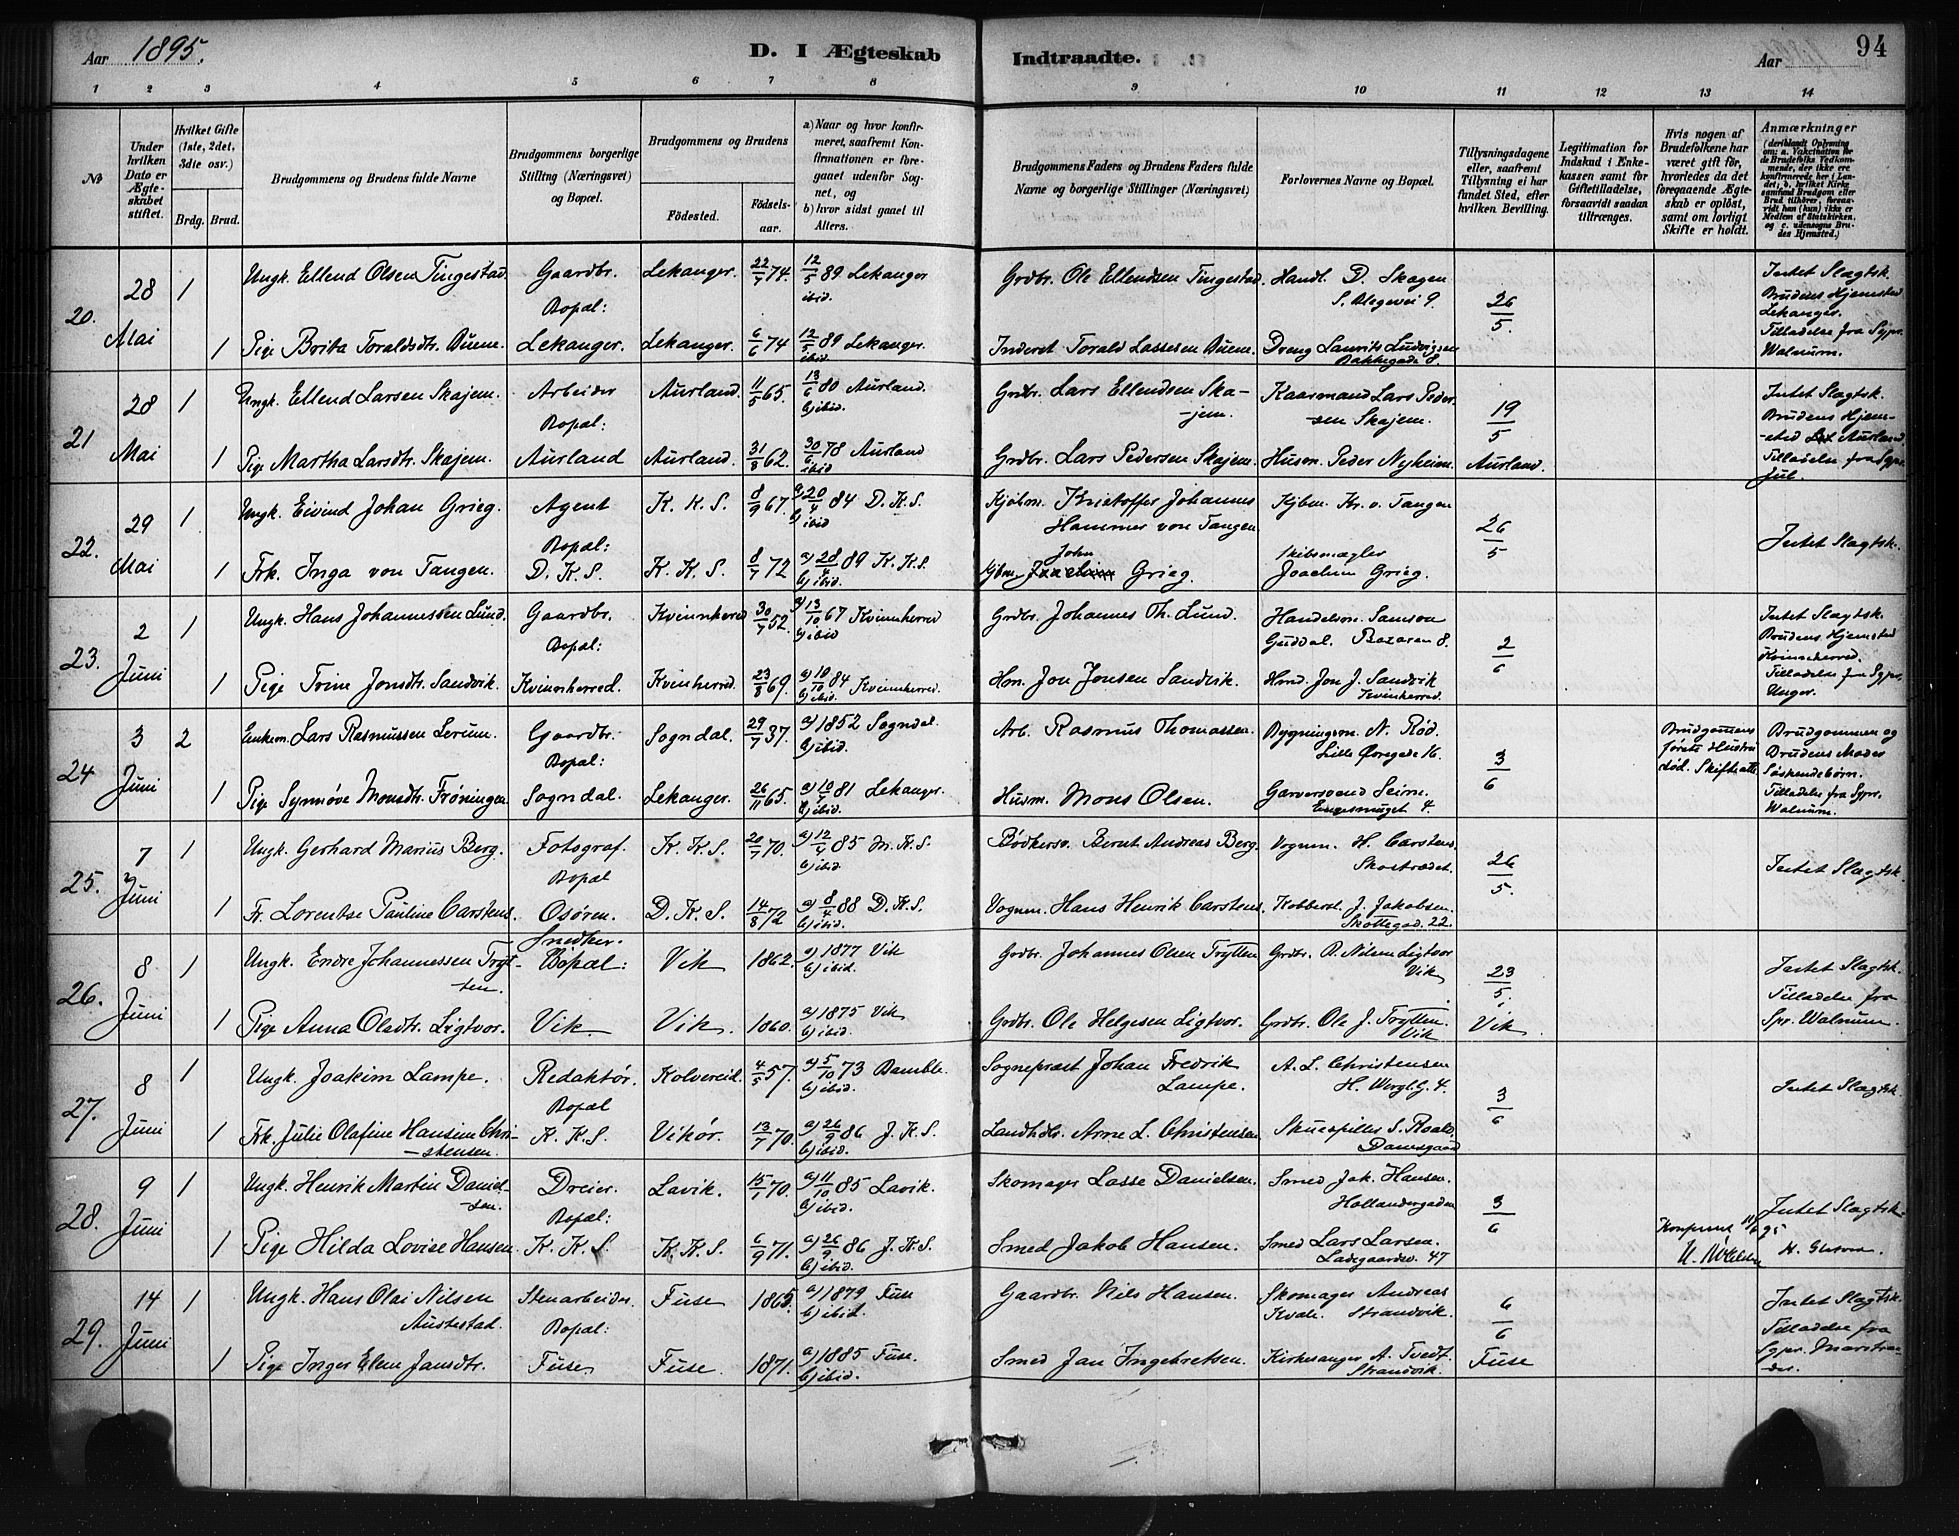 Aar 1895.
D. I Ægteskab
Indtraadte.
Aar
94
1 2 3 4 5 6 7 8 9 10 11 12 13 14
No
Under hvilken Dato er Ægteskabet stiftet.
Hvilket Gifte (1ste, 2det, 3die osv.)
Brdg. Brud.
Brudgommens og Brudens fulde Navne
Brudgommens borgerlige Stilling (Næringsvei) og Bopæl.
Brudgommens og Brudens
Födested.
Födselsaar.
a) Naar og hvor konfirmeret, saafremt Konfirmationen er foregaaet udenfor Sognet, og
b) hvor sidst gaaet til Alters.
Brudgommens Faders og Brudens Faders fulde Navne og borgerlige Stillinger (Næringsvei)
Forlovernes Navne og Bopæl.
Tillysningsdagene eller, saafremt Tillysning ei har fundet Sted, efter hvilken Bevilling.
Legitimation for Indskud i Enkekassen samt for Giftetilladelse, forsaavidt saadan tiltrænges.
Hvis nogen af Brudefolkene har været gift för, hvorledes da det foregaaende Ægteskab er oplöst, samt om lovligt Skifte er holdt.
Anmærkninger
20. 28 Mai 1 Ungk. Ellend Olsen Tingestad. Gaardbr. Lekanger. 22/7 74. 12/5 89 Lekanger ibid. Grdbr. Ole Ellendsen Tingestad. Handl. D. Skagen 26/5. Intet Slagtsk.
Bopæl: S. Blegevei 9. Brudens Hjemsted Lekanger.
1 Pige Brita Toraldsdtr. Buene. Lekanger. Lekanger. 6/6 74 12/5 89 Lekanger. ibid. Inderst Torald Lassesen Buene. Dreng Laurits Ludvigsen Bakkegade 8. Tilladelse fra Sgpr. Walnum.
21 28 Mai 1 Ungk. Ellend Larsen Skajem. Arbeider Aurland. 11/5 65. 13/6 80 Aurland. b) ibid. Grdbr. Lars Ellendsen Ska- Kaarmand Lars Peder- 19/5 Intet Slagtsk.
Bopæl: -jem. -sen Skajem. Brudens Hjem-
1 Pige Martha Larsdtr. Skajem. Aurland Aurland. 31/8 62. 30/6 78 Aurland ibid Grdbr. Lars Pedersen Skajem. Husm. Peder Nyheim. Aurland. -sted Aurland Tilladelse fra Sgpr. Jul.
22. 29 Mai 1 Ungk. Eivind Johan Grieg. Agent K. K. S. 8/9 67. a) 20/4 84 D. K. S. b) ibid Kjøbm. Kristoffer Johannes Kjbm. Kr. v. Tangen 26/5 Intet Slagtsk.
Bopæl: Hammer von Tangen
1 Frk. Inga von Tangen. D. K. S. K. K. S. 8/7 72 a) 28/4 89 K. K. S. b) ibid. Kjbm. John Grieg. Skibsmægler Joachim Grieg.
23. 2 Juni 1 Ungk. Hans Johannessen Lund. Gaardbr. Kvinnherred 30/7 52. a) 13/10 67 Kvinnherred b) ibid Grdbr. Johannes Th. Lund. Handelsm. Samson 2/6 Intet Slagtsk.
Bopæl: Guddal. Bazaren 8. Brudens Hjemsted Kvinneherred.
1 Pige Trine Jonsdtr. Sandvik. Kvinnherred. Kvinherred. 23/8 69. a) 10/10 84 Kvinnherred. b) ibid. Hm. Jon Jonsen Sandvik. Hmd. Jon J. Sandvik Kvinherred. Tilladelse fra Sgpr. Unger.
24 3 Juni 2 Enkem. Lars Rasmussen Lerum. Gaardbr. Sogndal. 29/7 37. a) 1852 Sogndal. b) ibid. Arb. Rasmus Thomassen. Bygningsm. N. Rød. 3/6 Brudgommens første Hustru død. Skifte Brudgommen og Brudens Moder Søskendebørn.
Bopæl: Lille Øvregade 16.
1 Pige Synnøve Monsdtr. Frøningen Sogndal. Lekanger. 26/11 65. 81 Lekanger. b) ibid. Husm. Mons Olsen. Garversvend Seim. Engesmuget 4. Tilladelse fra Sgpr. Walnum.
25. 7 Juni 1 Ungk. Gerhard Marius Berg. Fotograf. K. K. S. 20/7 70. a) 12/4 85 M. K. S. b) ibid. Bødkersv. Bernt Andreas Berg. Vognm. H. Carstens 26/5. Intet Slagtsk.
Bopæl Skostrædet.
1 Fr. Lorentse Pauline Carstens. Osøren. D. K. S. 14/8 72 a) 8/4 88 D. K. S. b) ibid. Vognm. Hans Henrik Carstens. Kobberst. J. Jakobsen. Skottegad. 22.
26. 8 Juni 1 Ungk. Endre Johannessen Tryt- Snedker. Vik 1862. a) 1877 Vik b) ibid. Grdbr. Johannes Olsen Trytten Grdbr. Nilsen Ligtvor Vik 23/5. Intet Slagtsk.
ten. Bopæl: Tilladelse fra
1 Pige Anna Olsdtr. Ligtvor. Vik Vik. 1860. a) 1875 Vik b) ibid. Grdbr. Ole Helgesen Ligtvor. Grdbr. Ole J. Trytten. Vik Vik Spr. Walnum.
27. 8 Juni 1 Ungk. Joakim Lampe. Redaktør. Kolvereid. 4/5 57. a) 5/10 73 Bamble. b) ibid. Sogneprest Johan Fredrik A. L. Christensen 3/6 Intet Slagtsk.
Bopæl Lampe. H. Wergl. G. 4.
1 Frk. Julie Olafine Hansine Chri- K. K. S. Vikør. 13/7 70. a) 26/9 86 J. K. S. b) ibid. Landh. Arne L. Christensen Skuespiller S. Roald. Damsgaard
-stensen.
28. 9 Juni 1 Ungk. Henrik Martin Daniel- Dreier. Lavik. 15/1 70. a) 11/10 85 Lavik. b) ibid. Skomager Lasse Danielsen. Smed Jak. Hansen. 3/6 Intet Slagtsk.
sen. Bopæl: Hollandergaden
1 Pige Hilda Lovise Hansen K. K. S. K. K. S. 6/9 71. a) 26/9 86 J. K. S. b) ibid. Smed Jakob Hansen. Smed Lars Larsen. Ladegaardsv. 47
29. 14 Juni 1 Ungk. Hans Olai Nilsen Stenarbeider. Fuse 1865. a) 1879 Fuse b) ibid. Gaardbr. Nils Hansen. Skomager Andreas 6/6 Intet Slagtsk.
Austestad. Bopæl: Kvale. Strandvik. Tilladelse fra
1 Pige Inger Elene Jansdtr. Fuse. Fuse. 1871. a) 1885 Fuse. b) ibid. Smed Jan Ingebretsen. Kirkesanger A. Tvedt. Strandvik. Fuse Sgpr.